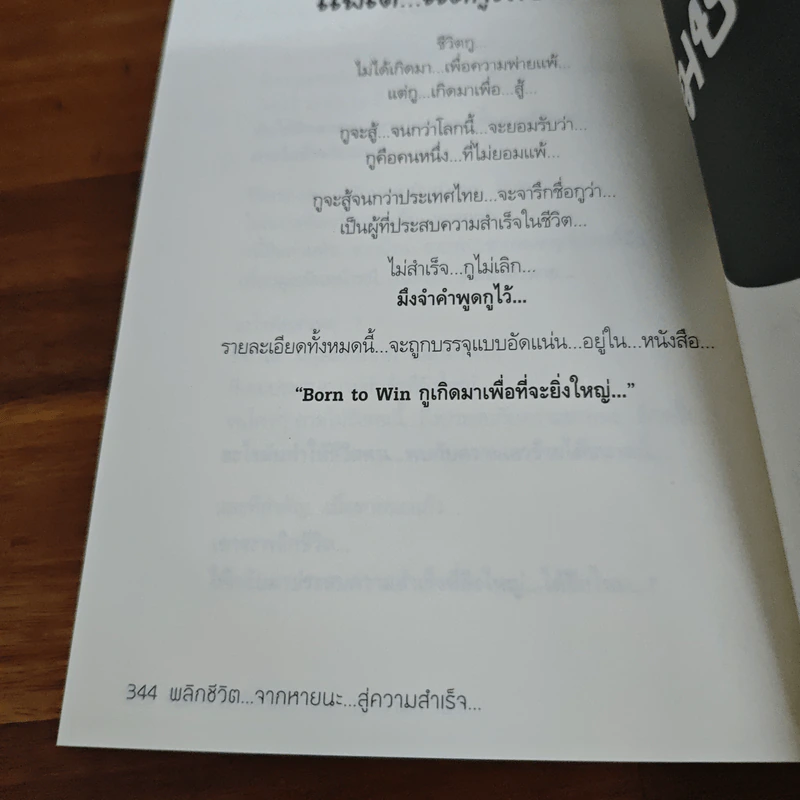 ชีวิตกู...
ไม่ได้เกิดมา...เพื่อความพ่ายแพ้...
แต่กู...เกิดมาเพื่อ...สู้...
กูจะสู้...จนกว่าโลกนี้...จะยอมรับว่า...
กูคือคนหนึ่ง...ที่ไม่ยอมแพ้...
กูจะสู้จนกว่าประเทศไทย...จะจารึกชื่อกูว่า...
เป็นผู้ที่ประสบความสำเร็จในชีวิต...
ไม่สำเร็จ...กูไม่เลิก...
มึงจำคำพูดกูไว้...
รายละเอียดทั้งหมดนี้...จะถูกบรรจุแบบอัดแน่น...อยู่ใน...หนังสือ...
“Born to Win กูเกิดมาเพื่อที่จะยิ่งใหญ่...”
344 พลิกชีวิต...จากหายนะ...สู่ความสำเร็จ...